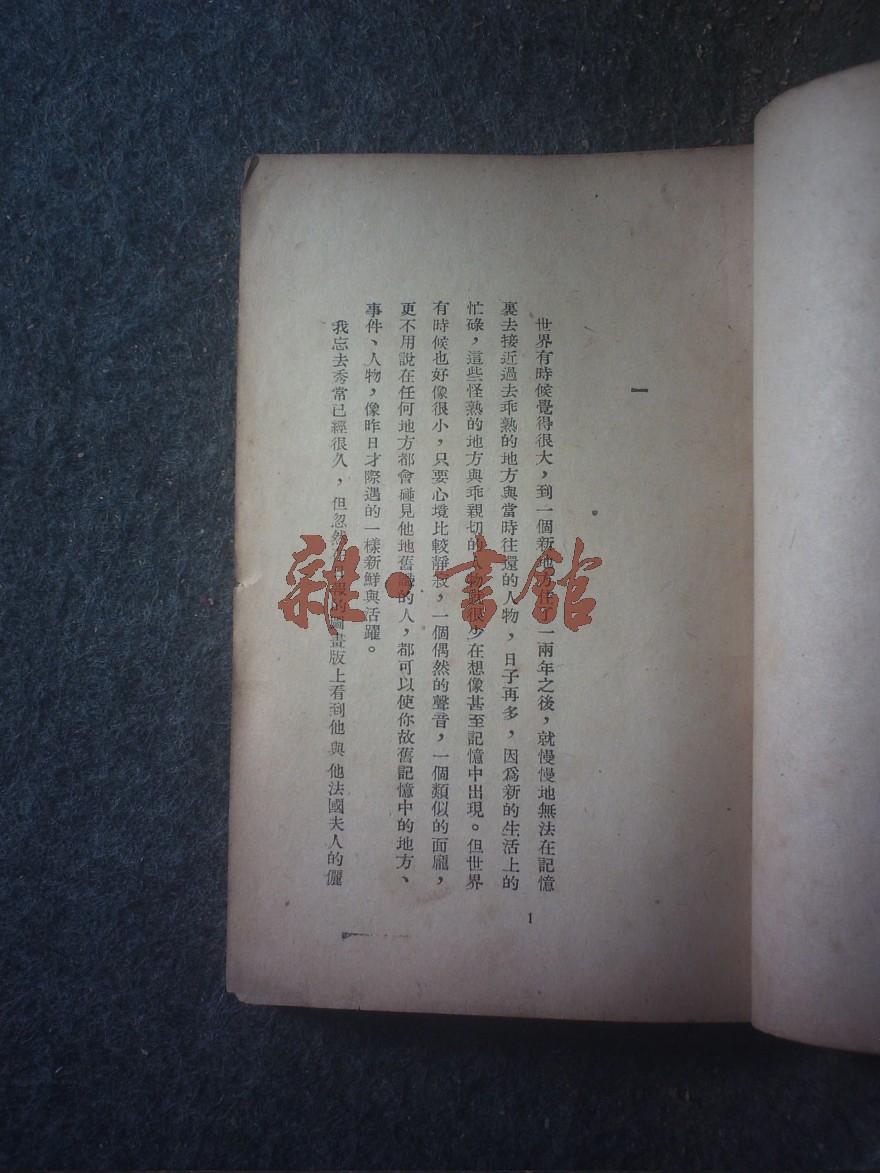 一
世界有時候覺得很大，到一個新地方住了一兩年之後，就慢慢地無法在記憶
裏去接近過去乖熟的地方與當時往還的人物，日子再多，因爲新的生活上的
忙碌，這些怪熟的地方與乖親切的人物很少在想像甚至記憶中出現。但世界
有時候也好像很小，只要心境比較靜寂，一個偶然的聲音，一個類似的面龐，
更不用說在任何地方都會碰見他地舊識的人，都可以使你故舊記憶中的地方、
事件、人物，像昨日才際遇的一樣新鮮與活躍。
我忘去秀常已經很久，但忽然 報的圖畫版上看到他與他法國夫人的儷
1
雜·書館